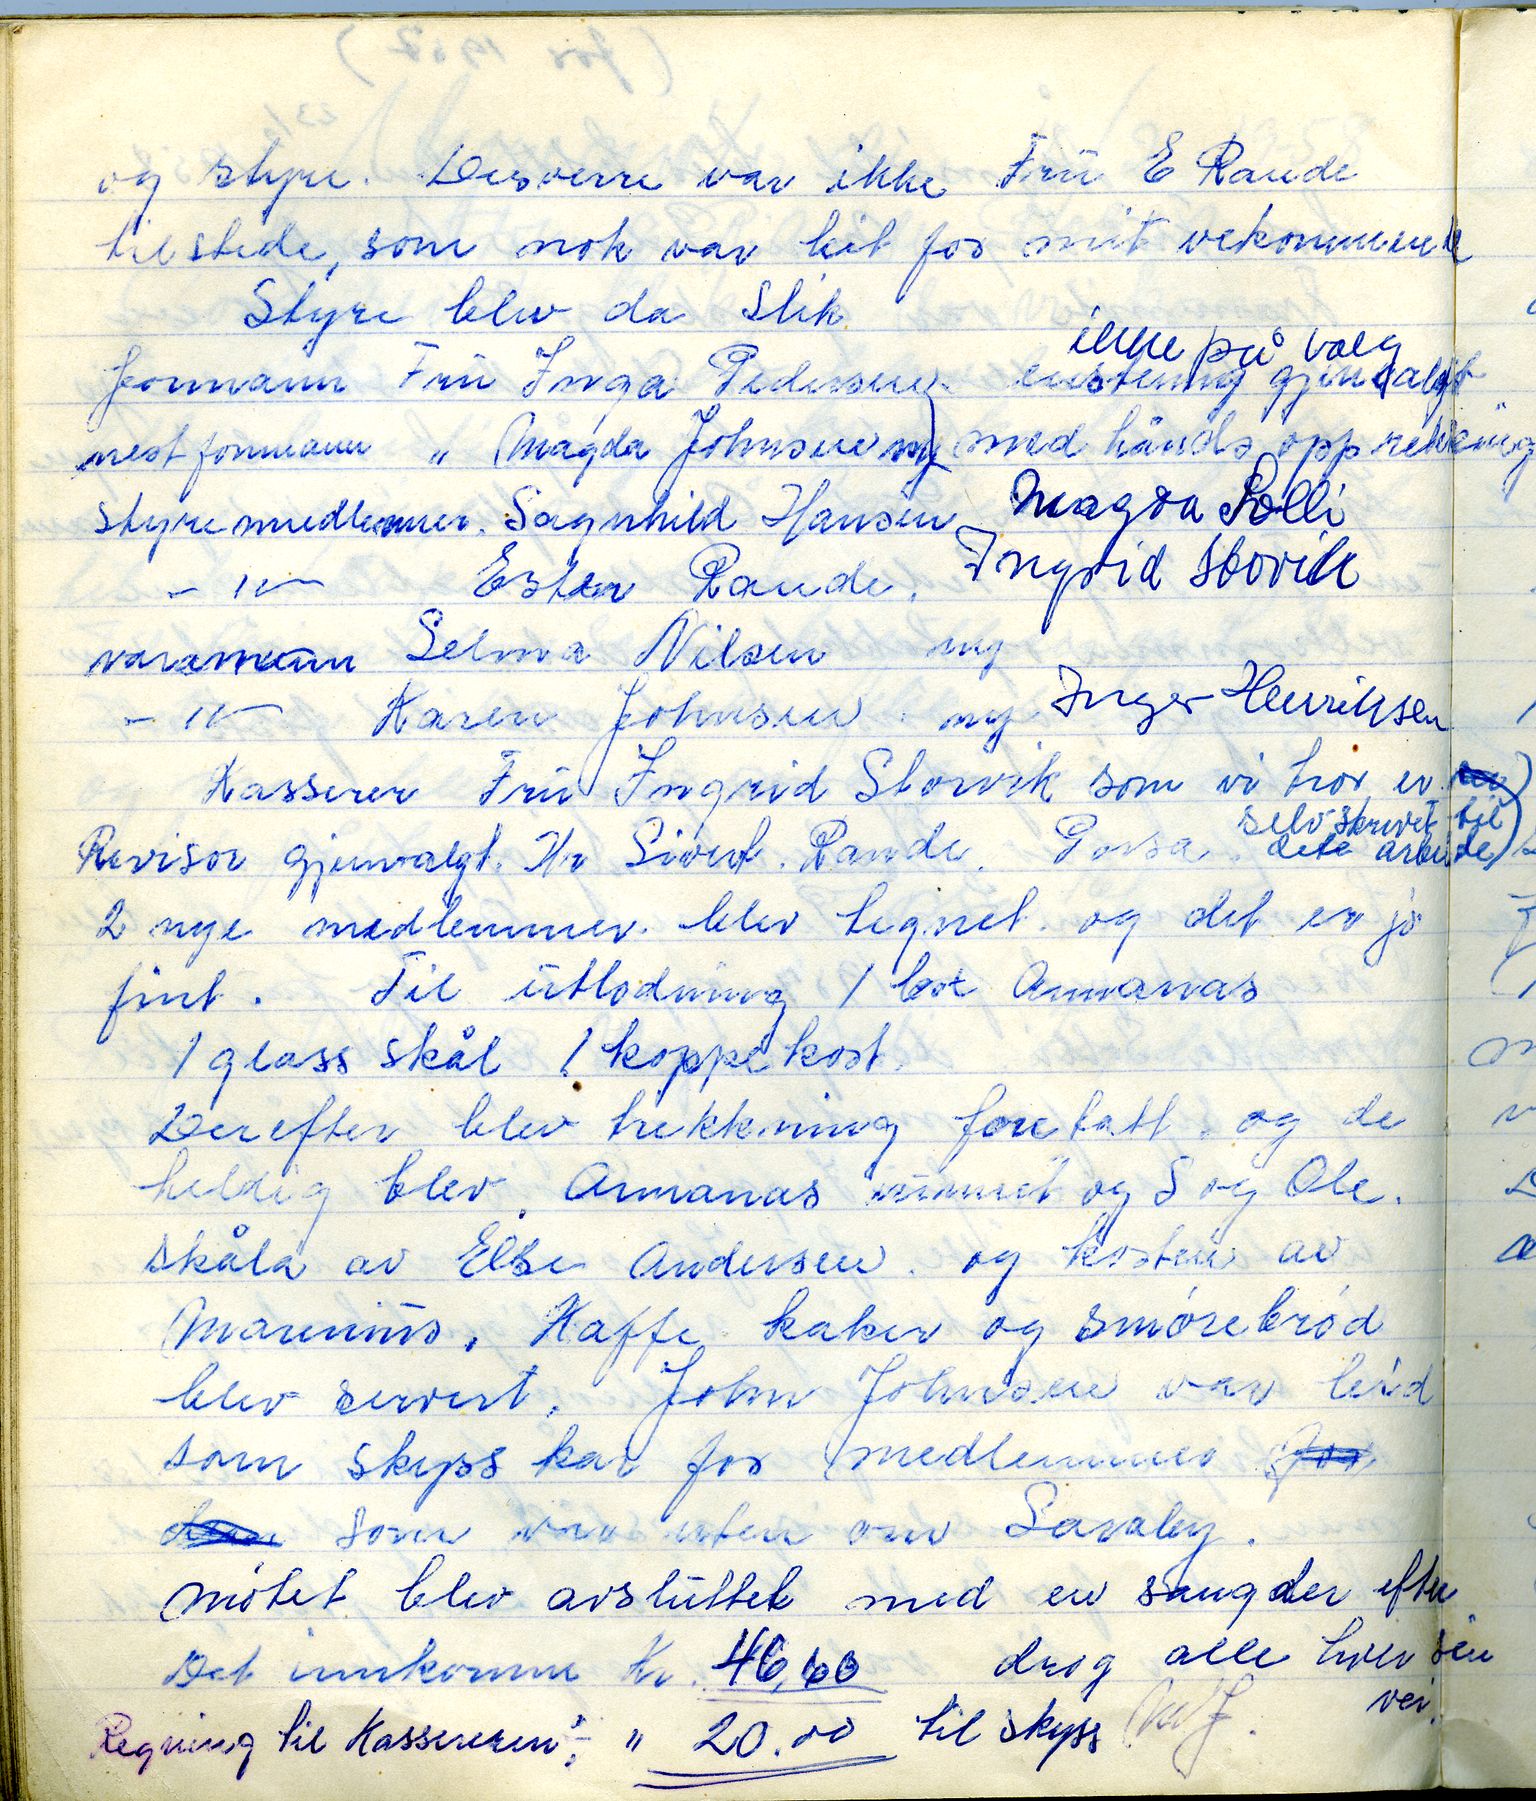 og styre. Desverre var ikke Frü E Rande
tilstede, som nok var leit for mit vekommende
Styre blev da slik
ikke på valg
formann Frü Inga Pedersen enstemig gjenvalgt
nestformann " Magda Johnsen ny med hånds opprekking
styremedlemmer. Sagnhild Hansen Magda Solli
- " - Ester Rande. Ingrid Storvik
varamann Selma Nilsen ny
- " - Karen Johnsen. ny Inger Henriksen
Kasserer Frü Ingrid Storvik som vi tror er
selvskrevet til
Revisor gjenvalgt. Hr Sivert. Rande. Porsa. dete arbeide)
2 nye medlemmer. blev tegnet. og det er jo
fint. Til ütlodning 1 box Annanas
1 glass skål 1 koppe kost.
Derefter blev trekkning foretatt. og de
heldig blev. Annanas vünnet og S og Ole.
skåla av Else Andersen. og kosten av
Marenüs. Kaffe kaker og smørebrød
blev servert. John Johnsen var leid
som skyss kar for medlemmer for
som var uten om Saraby.
møtet blev avslüttet med en sang der efter
Det innkomne Kr. 46,60 drog alle hver sin
vei.
Regning til Kassereren: " 20.00 til skyss MJ.